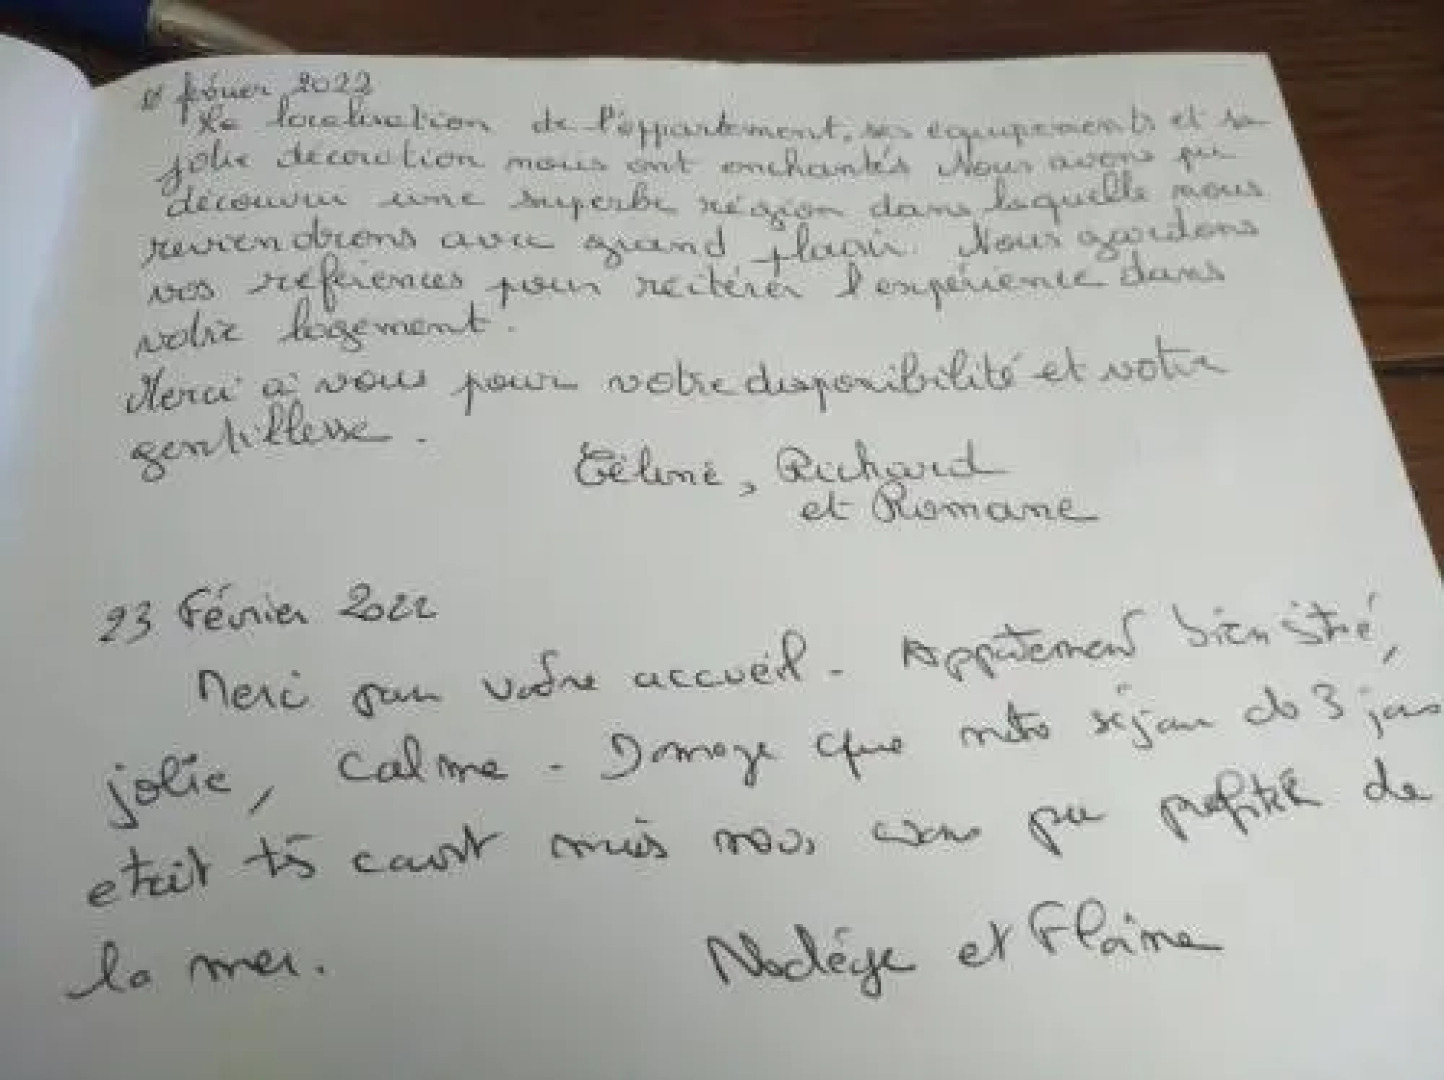 février 2022
La localisation de l'appartement, ses équipements et sa
jolie décoration nous ont enchantés Nous avons pu
découvrir une superbe région dans laquelle nous
reviendrons avec grand plaisir. Nous gardons
vos références pour réitérer l'expérience dans
votre logement.
Merci à vous pour votre disponibilité et votre
gentillesse.
Céline, Richard
et Romane
23 Février 2022
Merci pour votre accueil - Appartement bien situé,
jolie, calme - Domage que notre séjour de 3 jours
etait ts court mais nous avons pu profiter de
la mer.
Nadége et